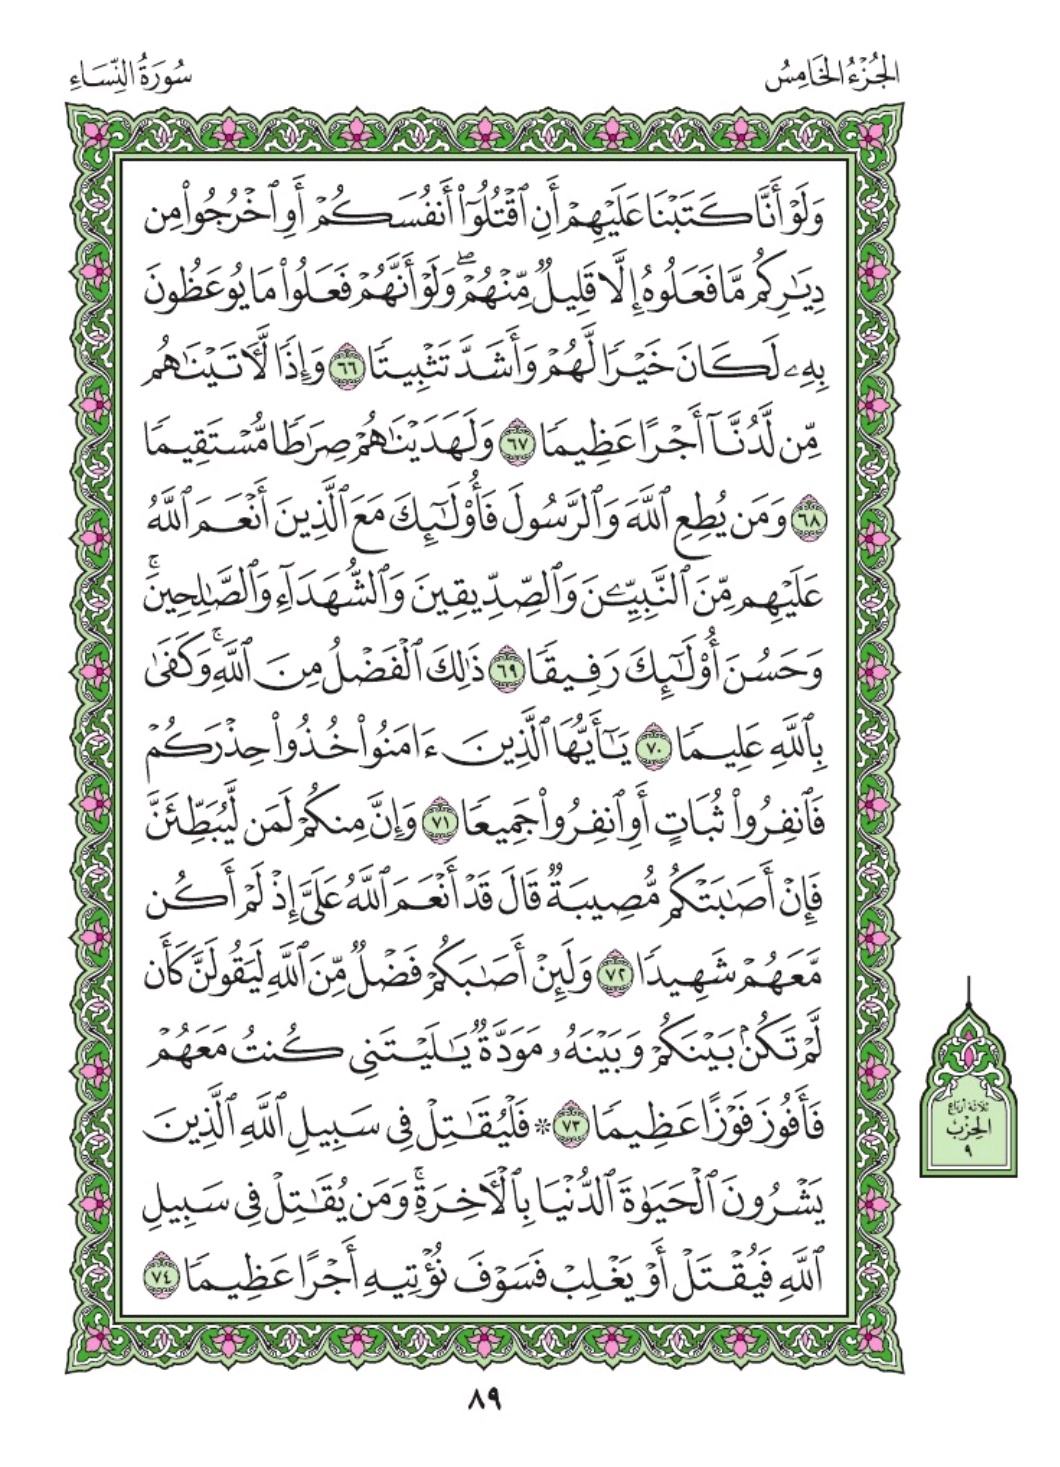 الجُزْءُ الخَامِسُ
سُورَةُ النِّسَاءِ
وَلَوْ أَنَّا كَتَبْنَا عَلَيْهِمْ أَنِ ٱقْتُلُوٓا۟ أَنفُسَكُمْ أَوِ ٱخْرُجُوا۟ مِن
دِيَـٰرِكُم مَّا فَعَلُوهُ إِلَّا قَلِيلٌ مِّنْهُمْ ۖ وَلَوْ أَنَّهُمْ فَعَلُوا۟ مَا يُوعَظُونَ
بِهِۦ لَكَانَ خَيْرًا لَّهُمْ وَأَشَدَّ تَثْبِيتًا ٦٦ وَإِذًا لَّـَٔاتَيْنَـٰهُم
مِّن لَّدُنَّآ أَجْرًا عَظِيمًا ٦٧ وَلَهَدَيْنَـٰهُمْ صِرَٰطًا مُّسْتَقِيمًا
٦٨ وَمَن يُطِعِ ٱللَّهَ وَٱلرَّسُولَ فَأُو۟لَـٰٓئِكَ مَعَ ٱلَّذِينَ أَنْعَمَ ٱللَّهُ
عَلَيْهِم مِّنَ ٱلنَّبِيِّـۧنَ وَٱلصِّدِّيقِينَ وَٱلشُّهَدَآءِ وَٱلصَّـٰلِحِينَ ۚ
وَحَسُنَ أُو۟لَـٰٓئِكَ رَفِيقًا ٦٩ ذَٰلِكَ ٱلْفَضْلُ مِنَ ٱللَّهِ ۚ وَكَفَىٰ
بِٱللَّهِ عَلِيمًا ٧٠ يَـٰٓأَيُّهَا ٱلَّذِينَ ءَامَنُوا۟ خُذُوا۟ حِذْرَكُمْ
فَٱنفِرُوا۟ ثُبَاتٍ أَوِ ٱنفِرُوا۟ جَمِيعًا ٧١ وَإِنَّ مِنكُمْ لَمَن لَّيُبَطِّئَنَّ
فَإِنْ أَصَـٰبَتْكُم مُّصِيبَةٌ قَالَ قَدْ أَنْعَمَ ٱللَّهُ عَلَىَّ إِذْ لَمْ أَكُن
مَّعَهُمْ شَهِيدًا ٧٢ وَلَئِنْ أَصَـٰبَكُمْ فَضْلٌ مِّنَ ٱللَّهِ لَيَقُولَنَّ كَأَن
لَّمْ تَكُنۢ بَيْنَكُمْ وَبَيْنَهُۥ مَوَدَّةٌ يَـٰلَيْتَنِى كُنتُ مَعَهُمْ
فَأَفُوزَ فَوْزًا عَظِيمًا ٧٣ ۞ فَلْيُقَـٰتِلْ فِى سَبِيلِ ٱللَّهِ ٱلَّذِينَ
يَشْرُونَ ٱلْحَيَوٰةَ ٱلدُّنْيَا بِٱلْـَٔاخِرَةِ ۚ وَمَن يُقَـٰتِلْ فِى سَبِيلِ
ٱللَّهِ فَيُقْتَلْ أَوْ يَغْلِبْ فَسَوْفَ نُؤْتِيهِ أَجْرًا عَظِيمًا ٧٤
ثلاثة أرباع
الحِزْب
٩
٨٩